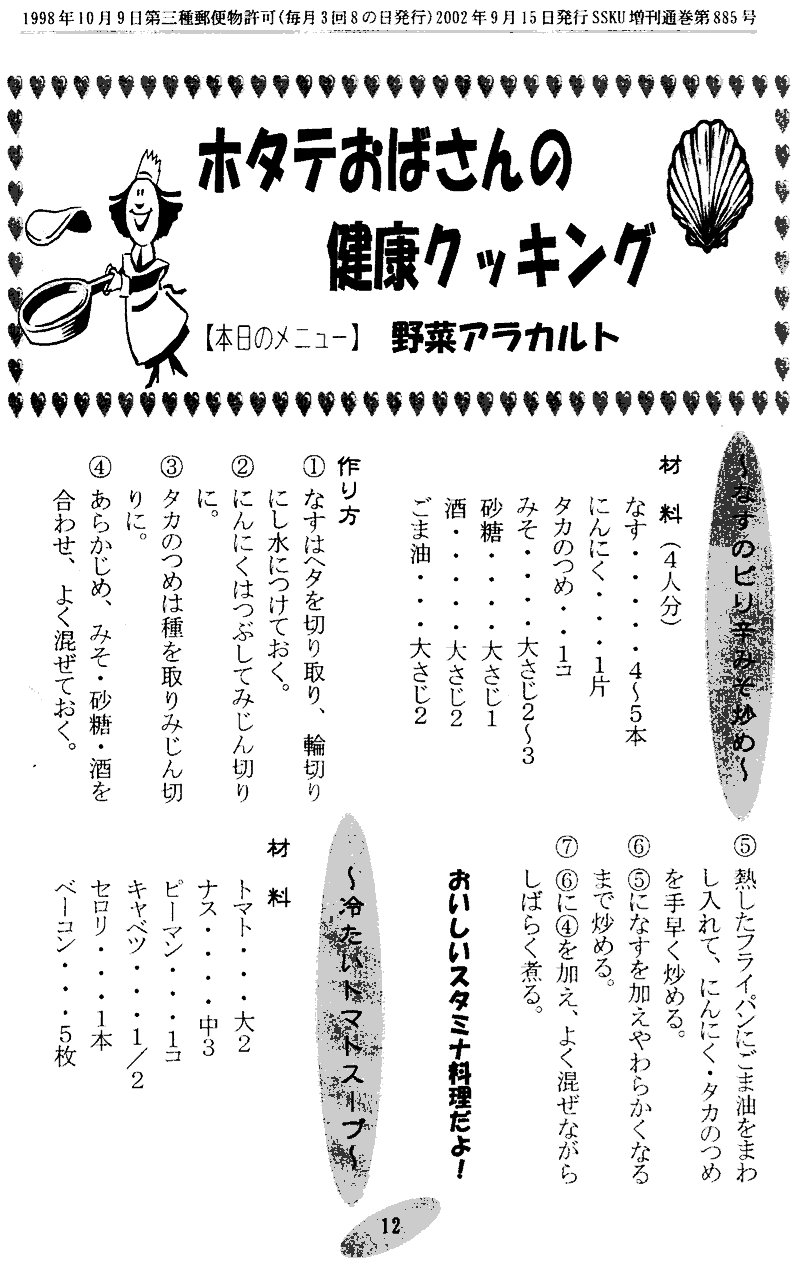 1998年10月9日第三種郵便物許可(毎月3回8の日発行)2002年9月15日発行SSKU増刊通巻第885号
ホタテおばさんの
健康クッキング
【本日のメニュー】 野菜アラカルト
～なすのピリ辛みそ炒め～
材料(4人分)
なす・・・・・4～5本
にんにく・・・1片
タカのつめ・・1コ
みそ・・・・大さじ2～3
砂糖・・・・大さじ1
酒・・・・・大さじ2
ごま油・・・大さじ2
作り方
①なすはヘタを切り取り、輪切り
にし水につけておく。
②にんにくはつぶしてみじん切り
に。
③タカのつめは種を取りみじん切
りに。
④あらかじめ、みそ・砂糖・酒を
合わせ、よく混ぜておく。
⑤熱したフライパンにごま油をまわ
し入れて、にんにく・タカのつめ
を手早く炒める。
⑥⑤になすを加えやわらかくなる
まで炒める。
⑦⑥に④を加え、よく混ぜながら
しばらく煮る。
おいしいスタミナ料理だよ!
～冷たいトマトスープ～
材料
トマト・・・大2
ナス・・・・中3
ピーマン・・・1コ
キャベツ・・・1/2
セロリ・・・1本
ベーコン・・・5枚
12